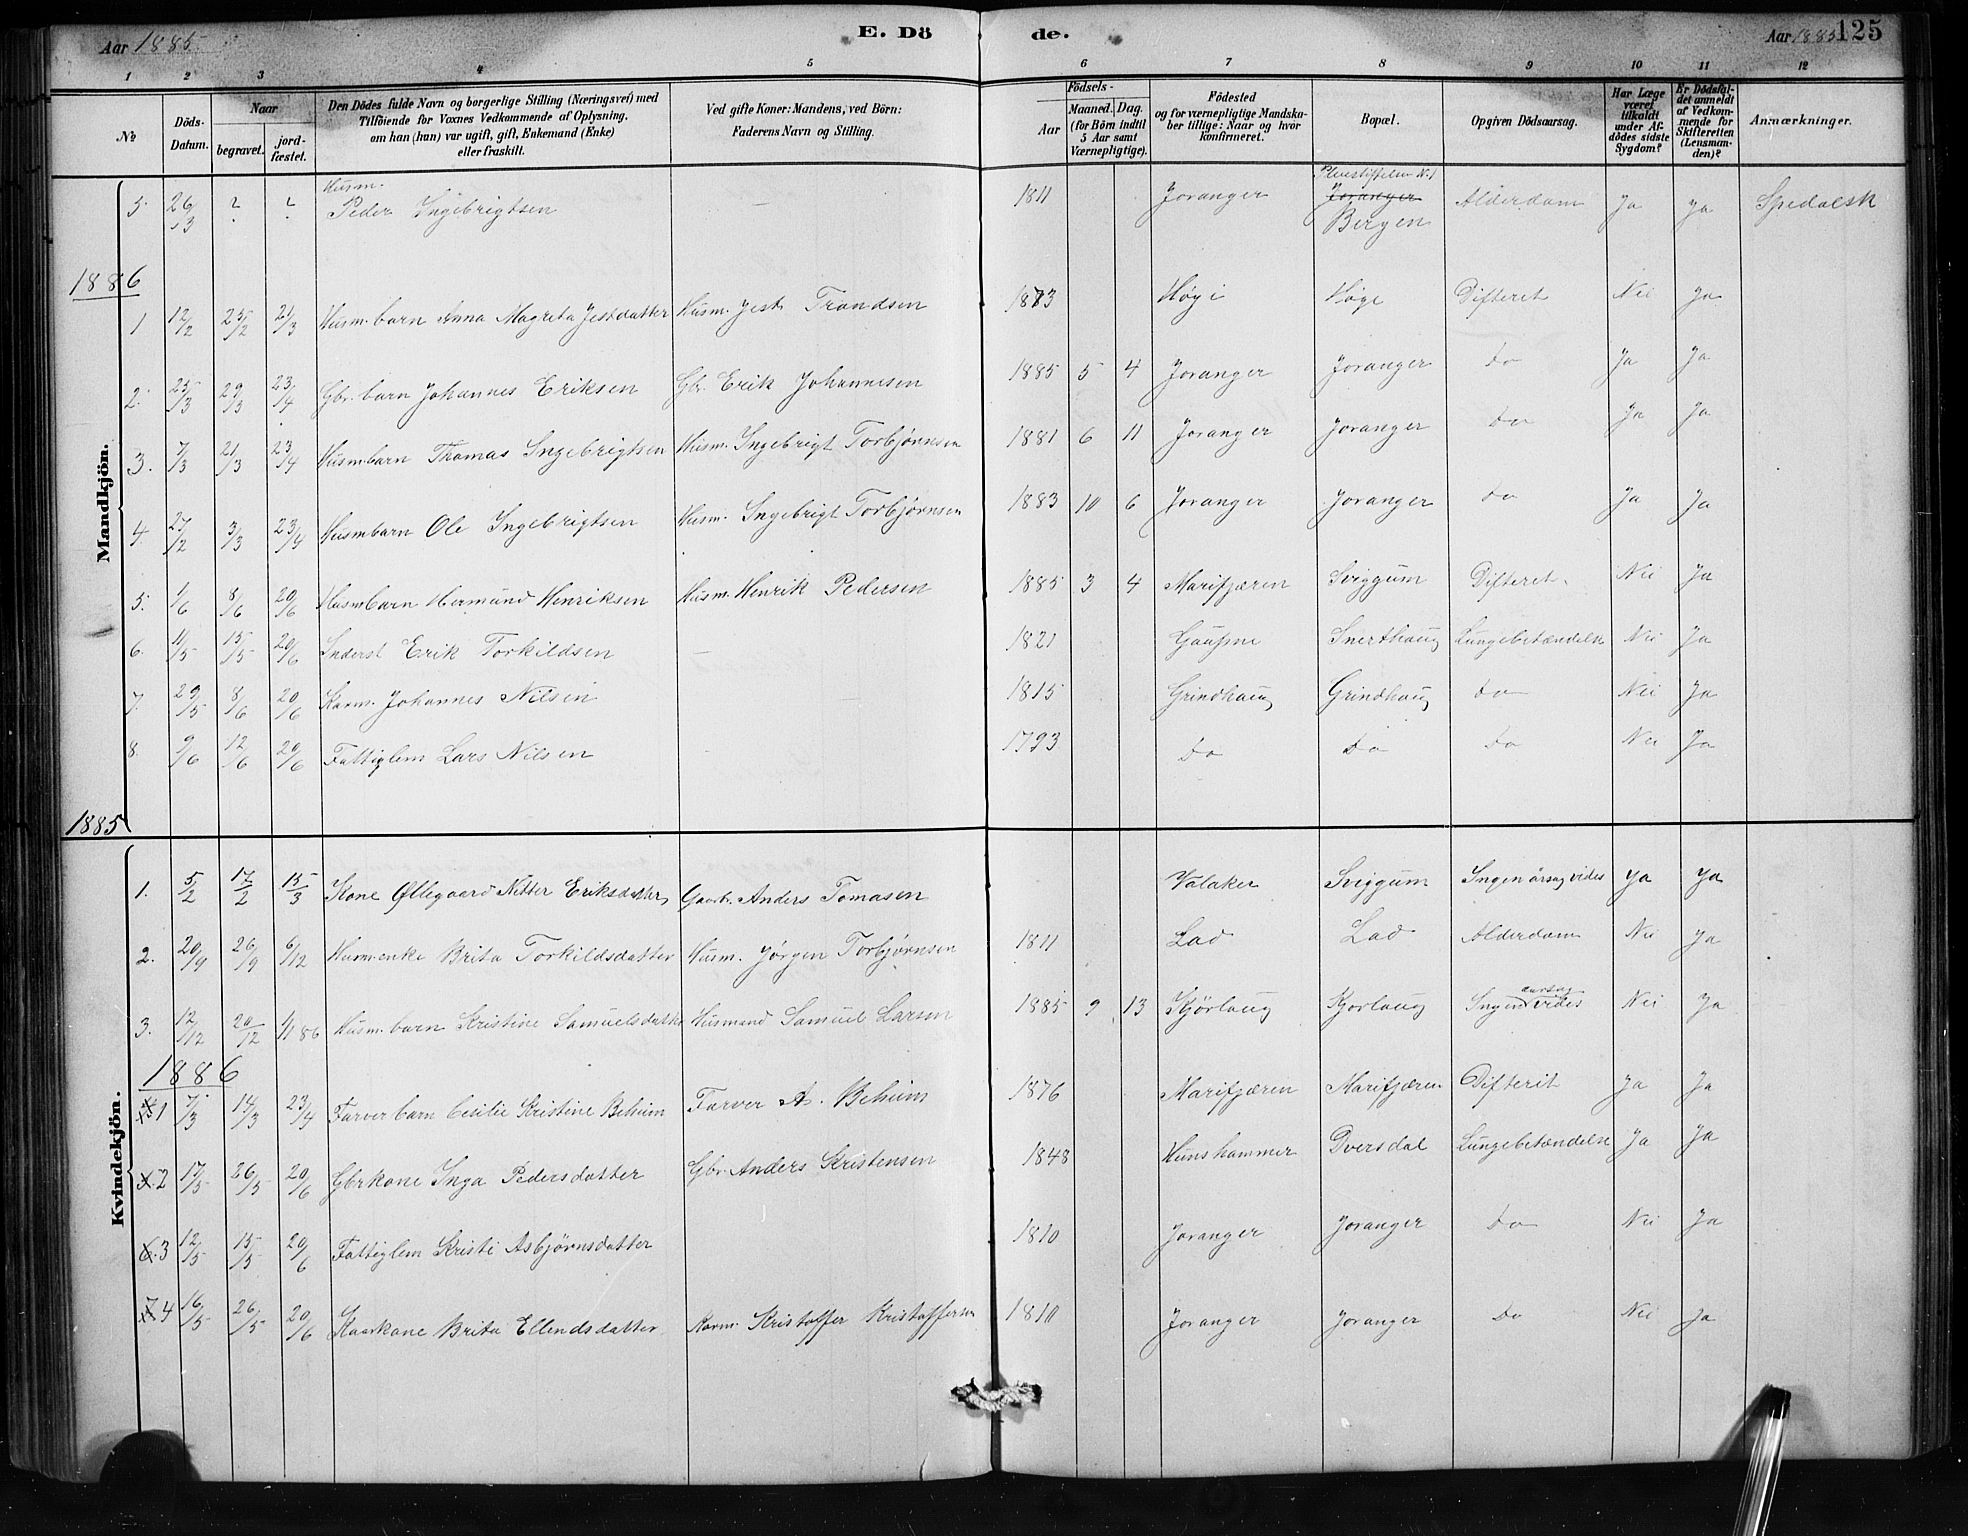 Aar 1885 E. Dö de. Aar 1885 125
1 2 3 4 5 6 7 8 9 10 11 12
No Döds-Datum. Naar begravet. jord-fæstet. Den Dödes fulde Navn og borgerlige Stilling (Næringsvei) med Tilföiende for Voxnes Vedkommende af Oplysning, om han (hun) var ugift, gift, Enkemand (Enke) eller fraskilt. Ved gifte Koner: Mandens, ved Börn: Faderens Navn og Stilling. Födsels- Aar Maaned. Dag. (for Börn indtil 5 Aar samt Værnepligtige). Födested og for værnepligtige Mandskaber tillige: Naar og hvor konfirmeret. Bopæl. Opgiven Dödsaarsag. Har Læge været tilkaldt under Afdödes sidste Sygdom? Er Dödsfaldet anmeldt af Vedkommende for Skifteretten (Lensmanden)? Anmærkninger.
Mandkjön.
5. 26/3 ? ? Husm. Peder Ingebrigtsen — 1811 Joranger Pleiestiftelsen N. 1 Joranger Bergen Alderdom Ja Ja Spedalsk
1886
1 12/2 25/2 21/3 Husm. barn Anna Magreta Jestdatter Husm. Jest Trondsen 1873 Høgi Høge Difteret Nei Ja
2. 25/3 29/3 23/4 Gbr. barn Johannes Eriksen Gbr. Erik Johannesen 1885 5 4 Joranger Joranger Do Ja Ja
3. 7/3 21/3 23/4 Husmbarn Tomas Ingebrigtsen Husm. Ingebrigt Torbjørnsen 1881 6 11 Joranger Joranger Do Ja Ja
4. 27/2 3/3 23/4 Husmbarn Ole Ingebrigtsen Husm. Ingebrigt Torbjørnsen 1883 10 6 Joranger Joranger Do Ja Ja
5. 1/6 8/6 20/6 Husmbarn Hermund Henriksen Husm. Henrik Pedersen 1885 3 4 Marifjæren Sviggum Difteret. Nei Ja
6. 11/5 15/5 20/6 Inderst Erik Torkildsen — 1821 Gaupne Snerthaug Lungebetændelse Nei Ja
7. 29/5 8/6 20/6 Kaarm. Johannes Nilsen — 1815 Grindhaug Grindhaug Do Nei Ja
8. 9/6 12/6 20/6 Fattiglem Lars Nilsen — 1793 Do Do Do Nei Ja
1885
Kvindekjön.
1. 5/2 17/2 15/3 Kone Øllegaard Nitter Eriksdatter Gaardbr. Anders Tomasen Valaker Sviggum Ingen årsag vides Ja Ja
2. 20/9 26/9 6/12 Husm.enke Brita Torkildsdatter Husm. Jørgen Torbjørnsen 1811 Lad Lad Alderdom Nei Ja
3. 12/12 20/12 1/1 86 Husm. barn Kristine Samuelsdatter Husmand Samuel Larsen 1885 9 13 Kjørlaug Kjorlaug Ingen aarsag vides Nei Ja
1886
4 1 7/3 14/3 23/4 Farver barn Cesilie Kristine Behum Farver A. Behum 1876 Marifjæren Marifjæren Difterit Ja Ja
5. 2 17/5 26/5 20/6 Gbrkone Inga Pedersdatter Gbr. Anders Kristensen 1848 Hunshammer Dversdal Lungebetændelse Ja Ja
6. 3 12/5 15/5 20/6 Fattiglem Kristi Asbjørnsdatter 1810 Joranger Joranger Do Nei Ja
7 4 16/5 26/5 20/6 Kaarkone Brita Ellendsdatter Kaarm. Kristoffer Kristoffersen 1810 Joranger Joranger Do Nei Ja